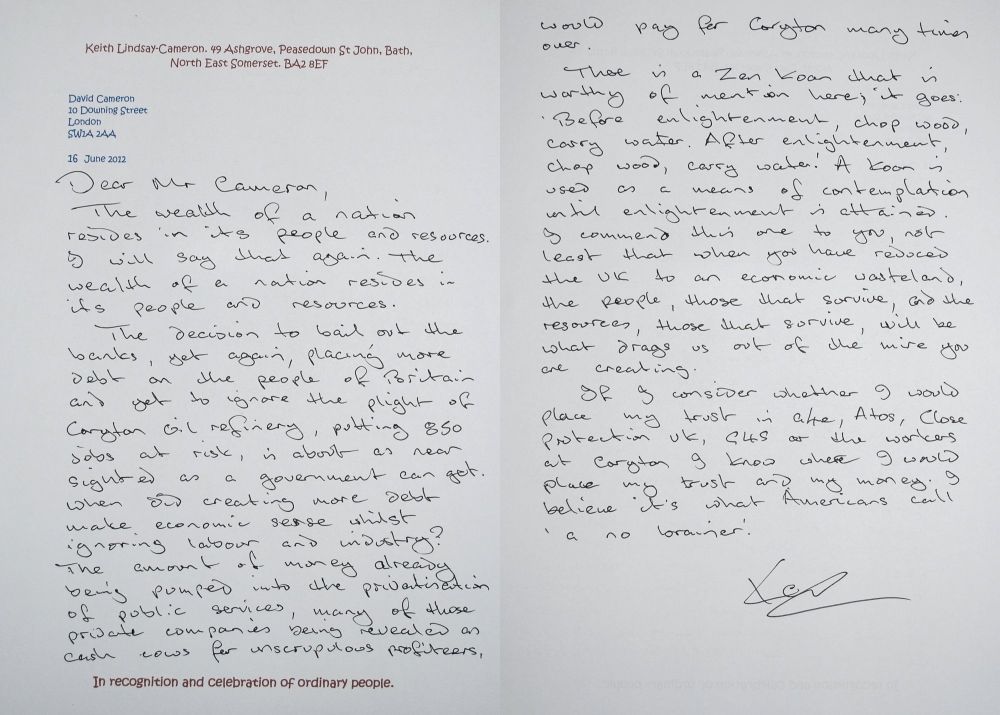 Keith Lindsay-Cameron. 49 Ashgrove, Peasedown St John, Bath,
North East Somerset. BA2 8EF
David Cameron
10 Downing Street
London
SW1A 2AA
16 June 2012
Dear Mr Cameron,
The wealth of a nation
resides in its people and resources.
I will say that again. The
wealth of a nation resides in
its people and resources.
The decision to bail out the
banks, yet again, placing more
debt on the people of Britain
and yet to ignore the plight of
Coryton oil refinery, putting 850
jobs at risk, is about as near
sighted as a government can get.
When did creating more debt
make economic sense whilst
ignoring labour and industry?
The amount of money already
being pumped into the privatisation
of public services, many of those
private companies being revealed as
cash cows for unscrupulous profiteers,
In recognition and celebration of ordinary people.
would pay for Coryton many times
over.
There is a Zen Koan that is
worthy of mention here; it goes:
'Before enlightenment, chop wood,
carry water. After enlightenment,
chop wood, carry water.' A Koan is
used as a means of contemplation
until enlightenment is attained.
I commend this one to you, not
least that when you have reduced
the UK to an economic wasteland,
the people, those that survive, and the
resources, those that survive, will be
what drags us out of the mire you
are creating.
If I consider whether I would
place my trust in a4e, Atos, Close
Protection UK, G4S or the workers
at Coryton I know where I would
place my trust and my money. I
believe it's what Americans call
'a no brainer'.